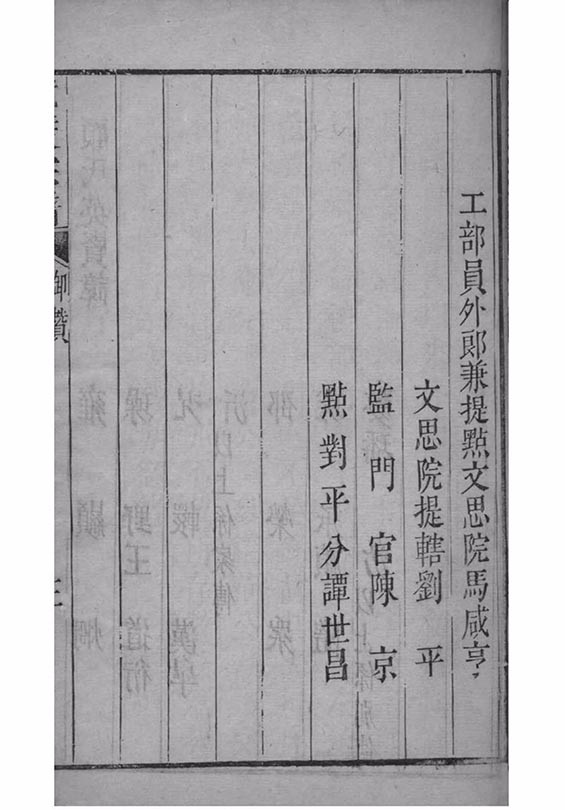 工部員外郎兼提點文思院馬咸亨
文思院提轄劉　平
監門　官陳　京
點對平分譚世昌
御贊